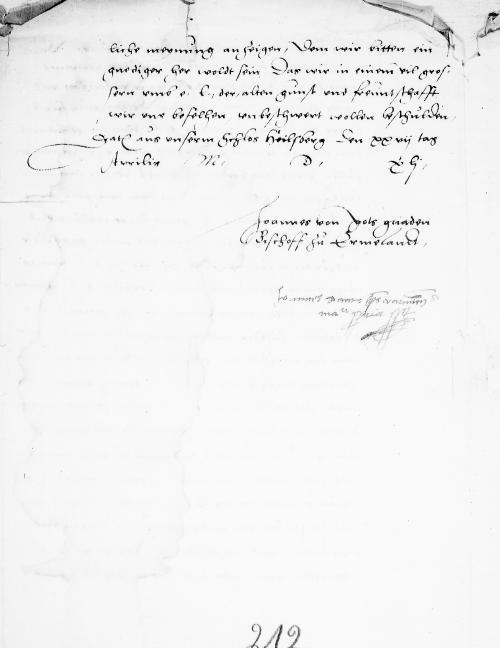 liche meynung anzeigen, Dem wir bitten ein
gnediger her woldt sein Das wir in einem vil gros-
sern vmb e. l., der alten gunst vnd freuntschafft
wir vns befelhen, vnbeschwert wollen beschulden,
Datum aus vnserm Schlos Heilsberg den xxvij tag
Aprilis M. D. xlj,
Joannes von Gots gnaden
Bischoff zu Ermelandt,
Joannes
212